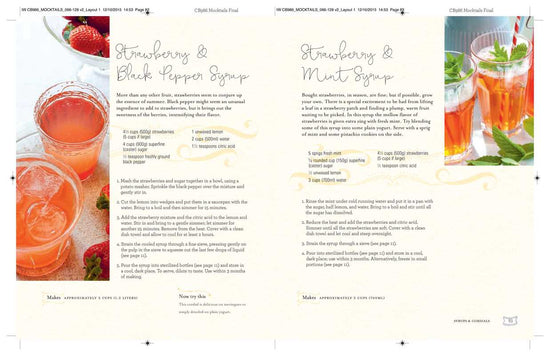 VIII CBI986_MOCKTAILS_096-128 v2_Layout 1 12/10/2015 14:53 Page 92
Strawberry &
Black Pepper Syrup
More than any other fruit, strawberries seem to conjure up
the essence of summer. Black pepper might seem an unusual
ingredient to add to strawberries, but it brings out the
sweetness of the berries, intensifying their flavor.
4½ cups (500g) strawberries
(5 cups if large)
4 cups (900g) superfine
(caster) sugar
½ teaspoon freshly ground
black pepper
1 unwaxed lemon
2 cups (500ml) water
1½ teaspoons citric acid
1. Mash the strawberries and sugar together in a bowl, using a
potato masher. Sprinkle the black pepper over the mixture and
gently stir in.
2. Cut the lemon into wedges and put them in a saucepan with the
water. Bring to a boil and then simmer for 15 minutes.
3. Add the strawberry mixture and the citric acid to the lemon and
water. Stir in and bring to a gentle simmer; let simmer for
another 15 minutes. Remove from the heat. Cover with a clean
dish towel and allow to cool for at least 2 hours.
4. Strain the cooled syrup through a fine sieve, pressing gently on
the pulp in the sieve to squeeze out the last few drops of liquid
(see page 11).
5. Pour the syrup into sterilized bottles (see page 11) and store in
a cool, dark place. To serve, dilute to taste. Use within 2 months
of making.
Makes APPROXIMATELY 5 CUPS (1.2 LITERS)
Now try this
This cordial is delicious on meringues or
simply drizzled on plain yogurt.
CBI986 Mocktails Final
Strawberry &
Mint Syrup
Bought strawberries, in season, are fine, but if possible, grow
your own. There is a special excitement to be had from lifting
a leaf in a strawberry patch and finding a plump, warm fruit
waiting to be picked. In this syrup the mellow flavor of
strawberries is given extra zing with fresh mint. Try blending
some of this syrup into some plain yogurt. Serve with a sprig
of mint and some pistachio cookies on the side.
5 sprigs fresh mint
¾ rounded cup (150g) superfine
(caster) sugar
½ unwaxed lemon
3 cups (700ml) water
4½ cups (500g) strawberries
(5 cups if large)
1½ teaspoons citric acid
1. Rinse the mint under cold running water and put it in a pan with
the sugar, half lemon, and water. Bring to a boil and stir until all
the sugar has dissolved.
2. Reduce the heat and add the strawberries and citric acid.
Simmer until all the strawberries are soft. Cover with a clean
dish towel and let cool and steep overnight.
3. Strain the syrup through a sieve (see page 11).
4. Pour into sterilized bottles (see page 11) and store in a cool,
dark place; use within 2 months. Alternatively, freeze in small
portions (see page 11).
Makes APPROXIMATELY 3 CUPS (700ML)
SYRUPS & CORDIALS